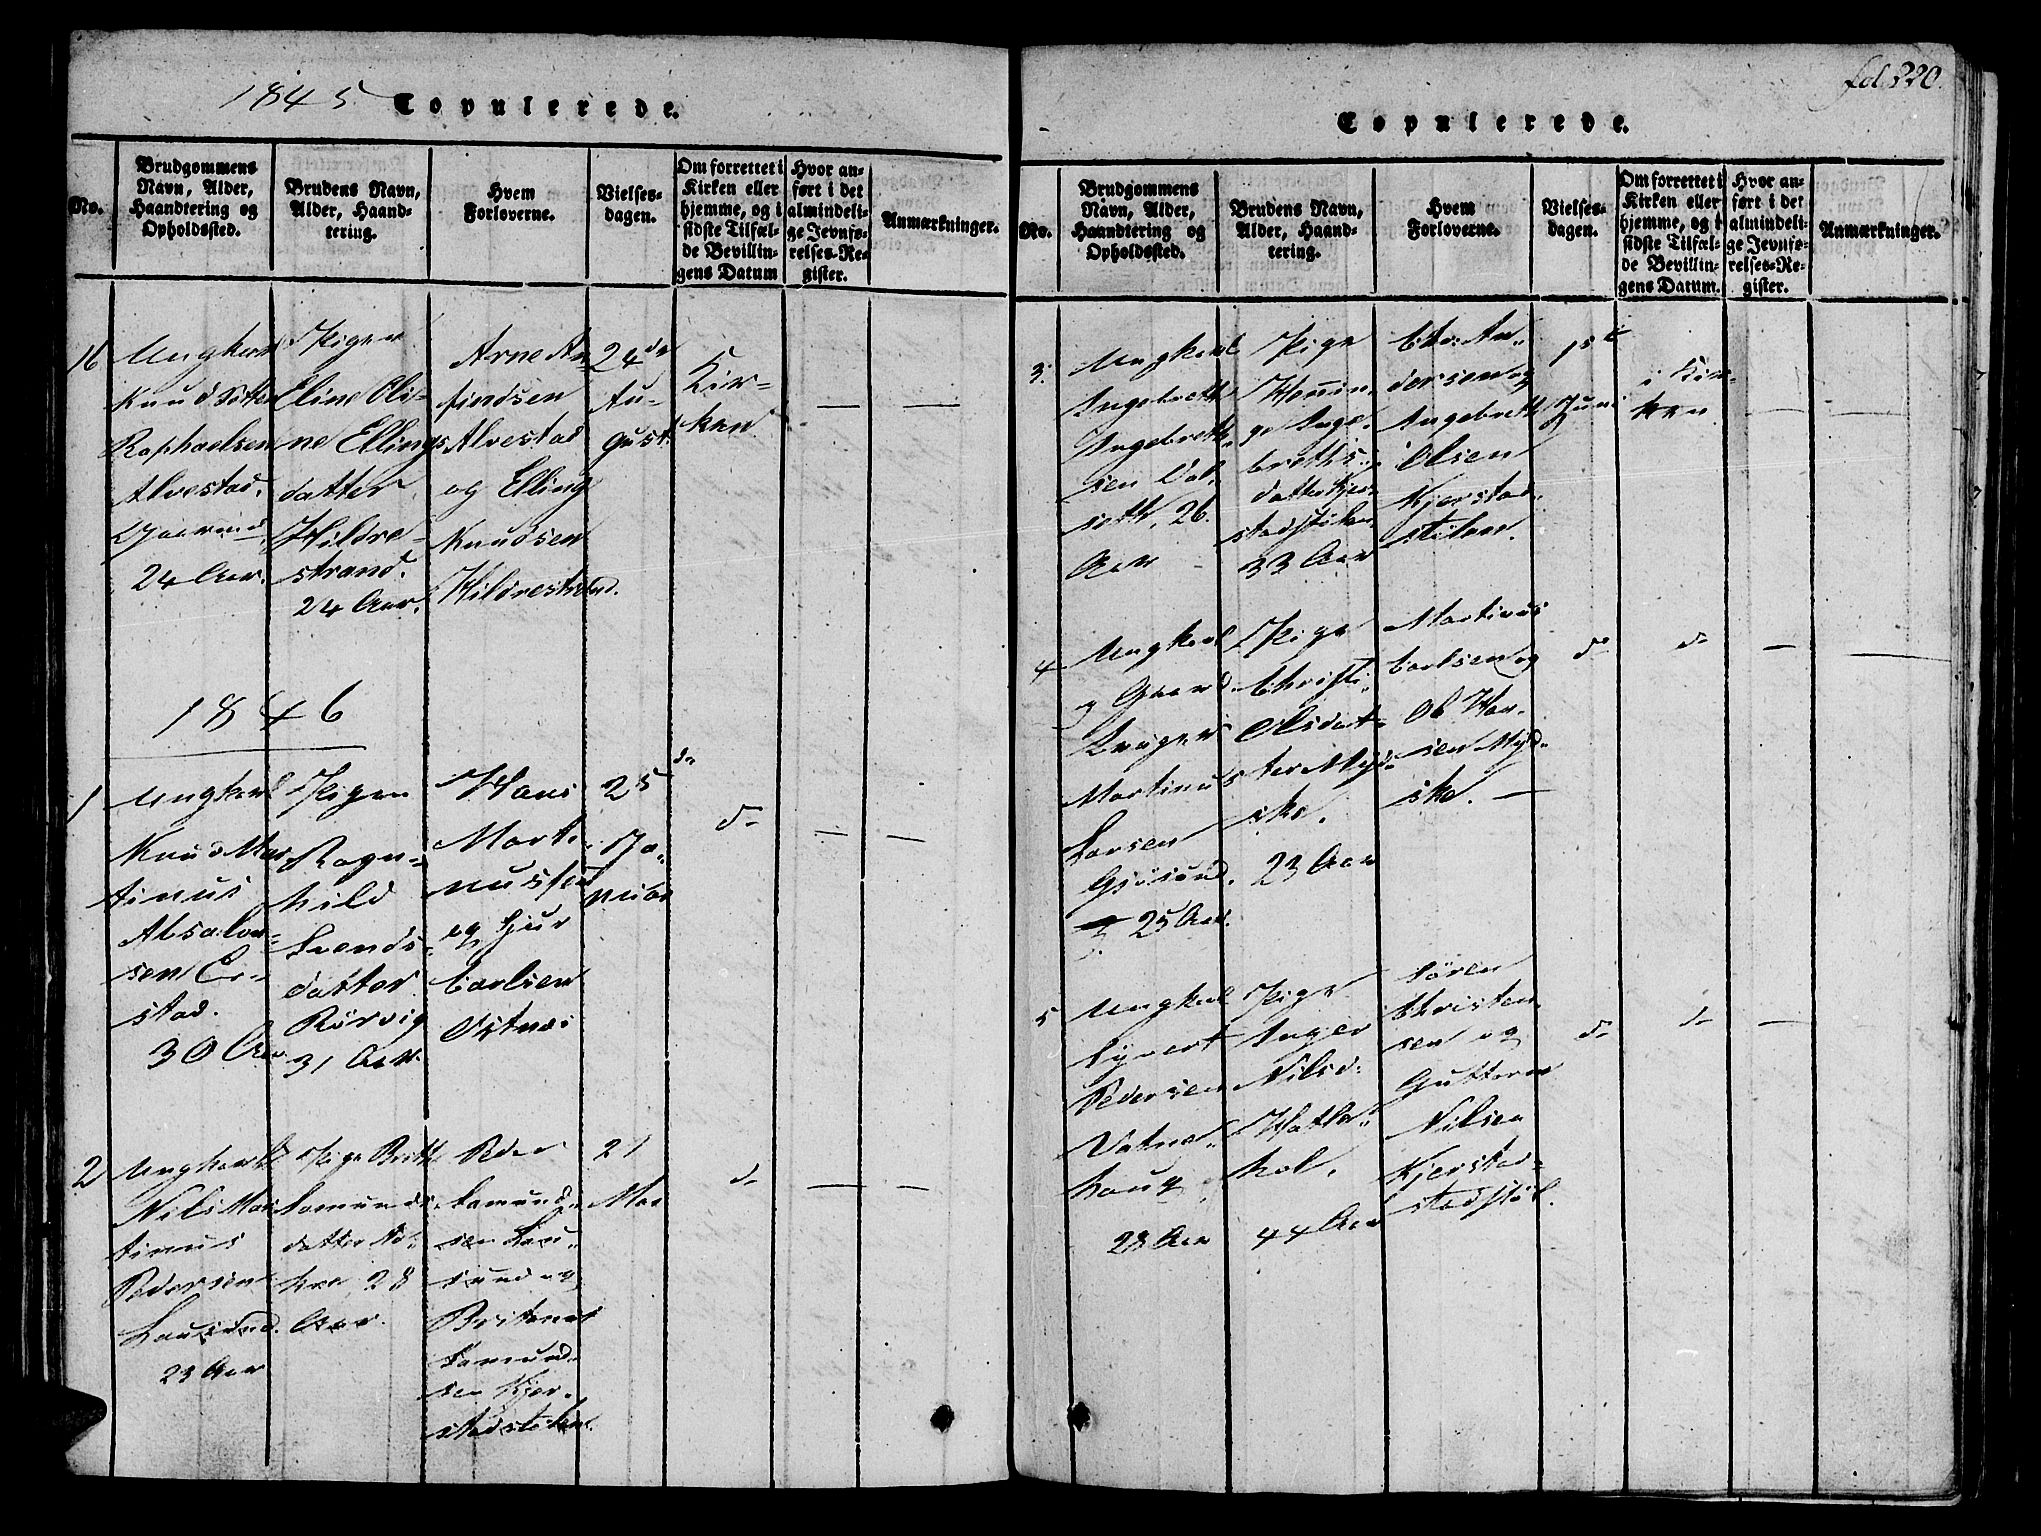 1845. Copulerede.
No.
Brudgommens
Navn, Alder,
Haandtering og
Opholdssted.
Brudens Navn,
Alder, Haand-
tering.
Hvem
Forloverne.
Vielses-
dagen.
Om forrettet i
Kirken eller
hjemme, og i
sidste Tilfæl-
de Bevillin-
gens Datum
Hvor an-
ført i det
almindeli-
ge Jevnfø-
relses-Re-
gister.
Anmærkninger.
16
Ungkarl
Knud Sitten
Raphaelsen
Alvestad.
24 Aar.
Pigen
Eline Oli-
ne Ellings
datter
Hildre-
strand.
24 Aar.
Arne An-
findsen
Alvestad
og Elling
Knudsen
Hildrestrand.
24de
Au-
gust.
Kir-
ken
1846
1
Ungkarl
Knud Mar
tinus
Absalon-
sen Er-
stad.
30 Aar
Pigen
Ragn-
hild
Svends-
datter
Rörvig
31 Aar.
Hans
Marti-
nussen
og Sjur
Carlsen
Östnæs
25de
Ja-
nuar
do
2
Ungkarl
Nils Mar
tinus
Pedersen
Lausund.
23 Aar
Pige Brithe
Samunds-
datter
28
Aar.
Peder
Samund-
sen Lau-
sund og
Samund-
sen Kjer-
stadstölen.
21
Mar
do
fol. 220.
Copulerede.
No.
Brudgommens
Navn, Alder,
Haandtering og
Opholdssted.
Brudens Navn,
Alder, Haand-
tering.
Hvem
Forloverne.
Vielses-
dagen.
Om forrettet i
Kirken eller
hjemme, og i
sidste Tilfæl-
de Bevillin-
gens Datum.
Hvor an-
ført i det
almindeli-
ge Jevnfø-
relses-Re-
gister.
Anmærkninger.
3.
Ungkarl
Ingebreth
Ingebreth-
sen Dal-
seth, 26.
Aar
Pige
Hennin-
ge Inge-
breths-
datter Kjer-
stadstölen
33 Aar
Chr: An-
dersen og
Ingebreth
Olsen
Kjerstad-
stölen.
1ste
Juni
i Kir-
ken
4
Ungkarl
og Gaard
bruger
Martinus
Larsen
Gjösund.
25 Aar.
Pige
Christi-
Olsdat-
ter Myd-
ske.
23 Aar
Martinus
Carlsen og
Ol Han-
sen Myd-
ske.
do
do
5
Ungkarl
Syvert
Pedersen
Vatne-
houg
28 Aar
Pige
Inger
Nilsd:
Hatle-
hol.
44 Aar
Sören
Christen-
sen og
Guttorm
Nilsen
Kjerstad-
stadstöl.
do
do